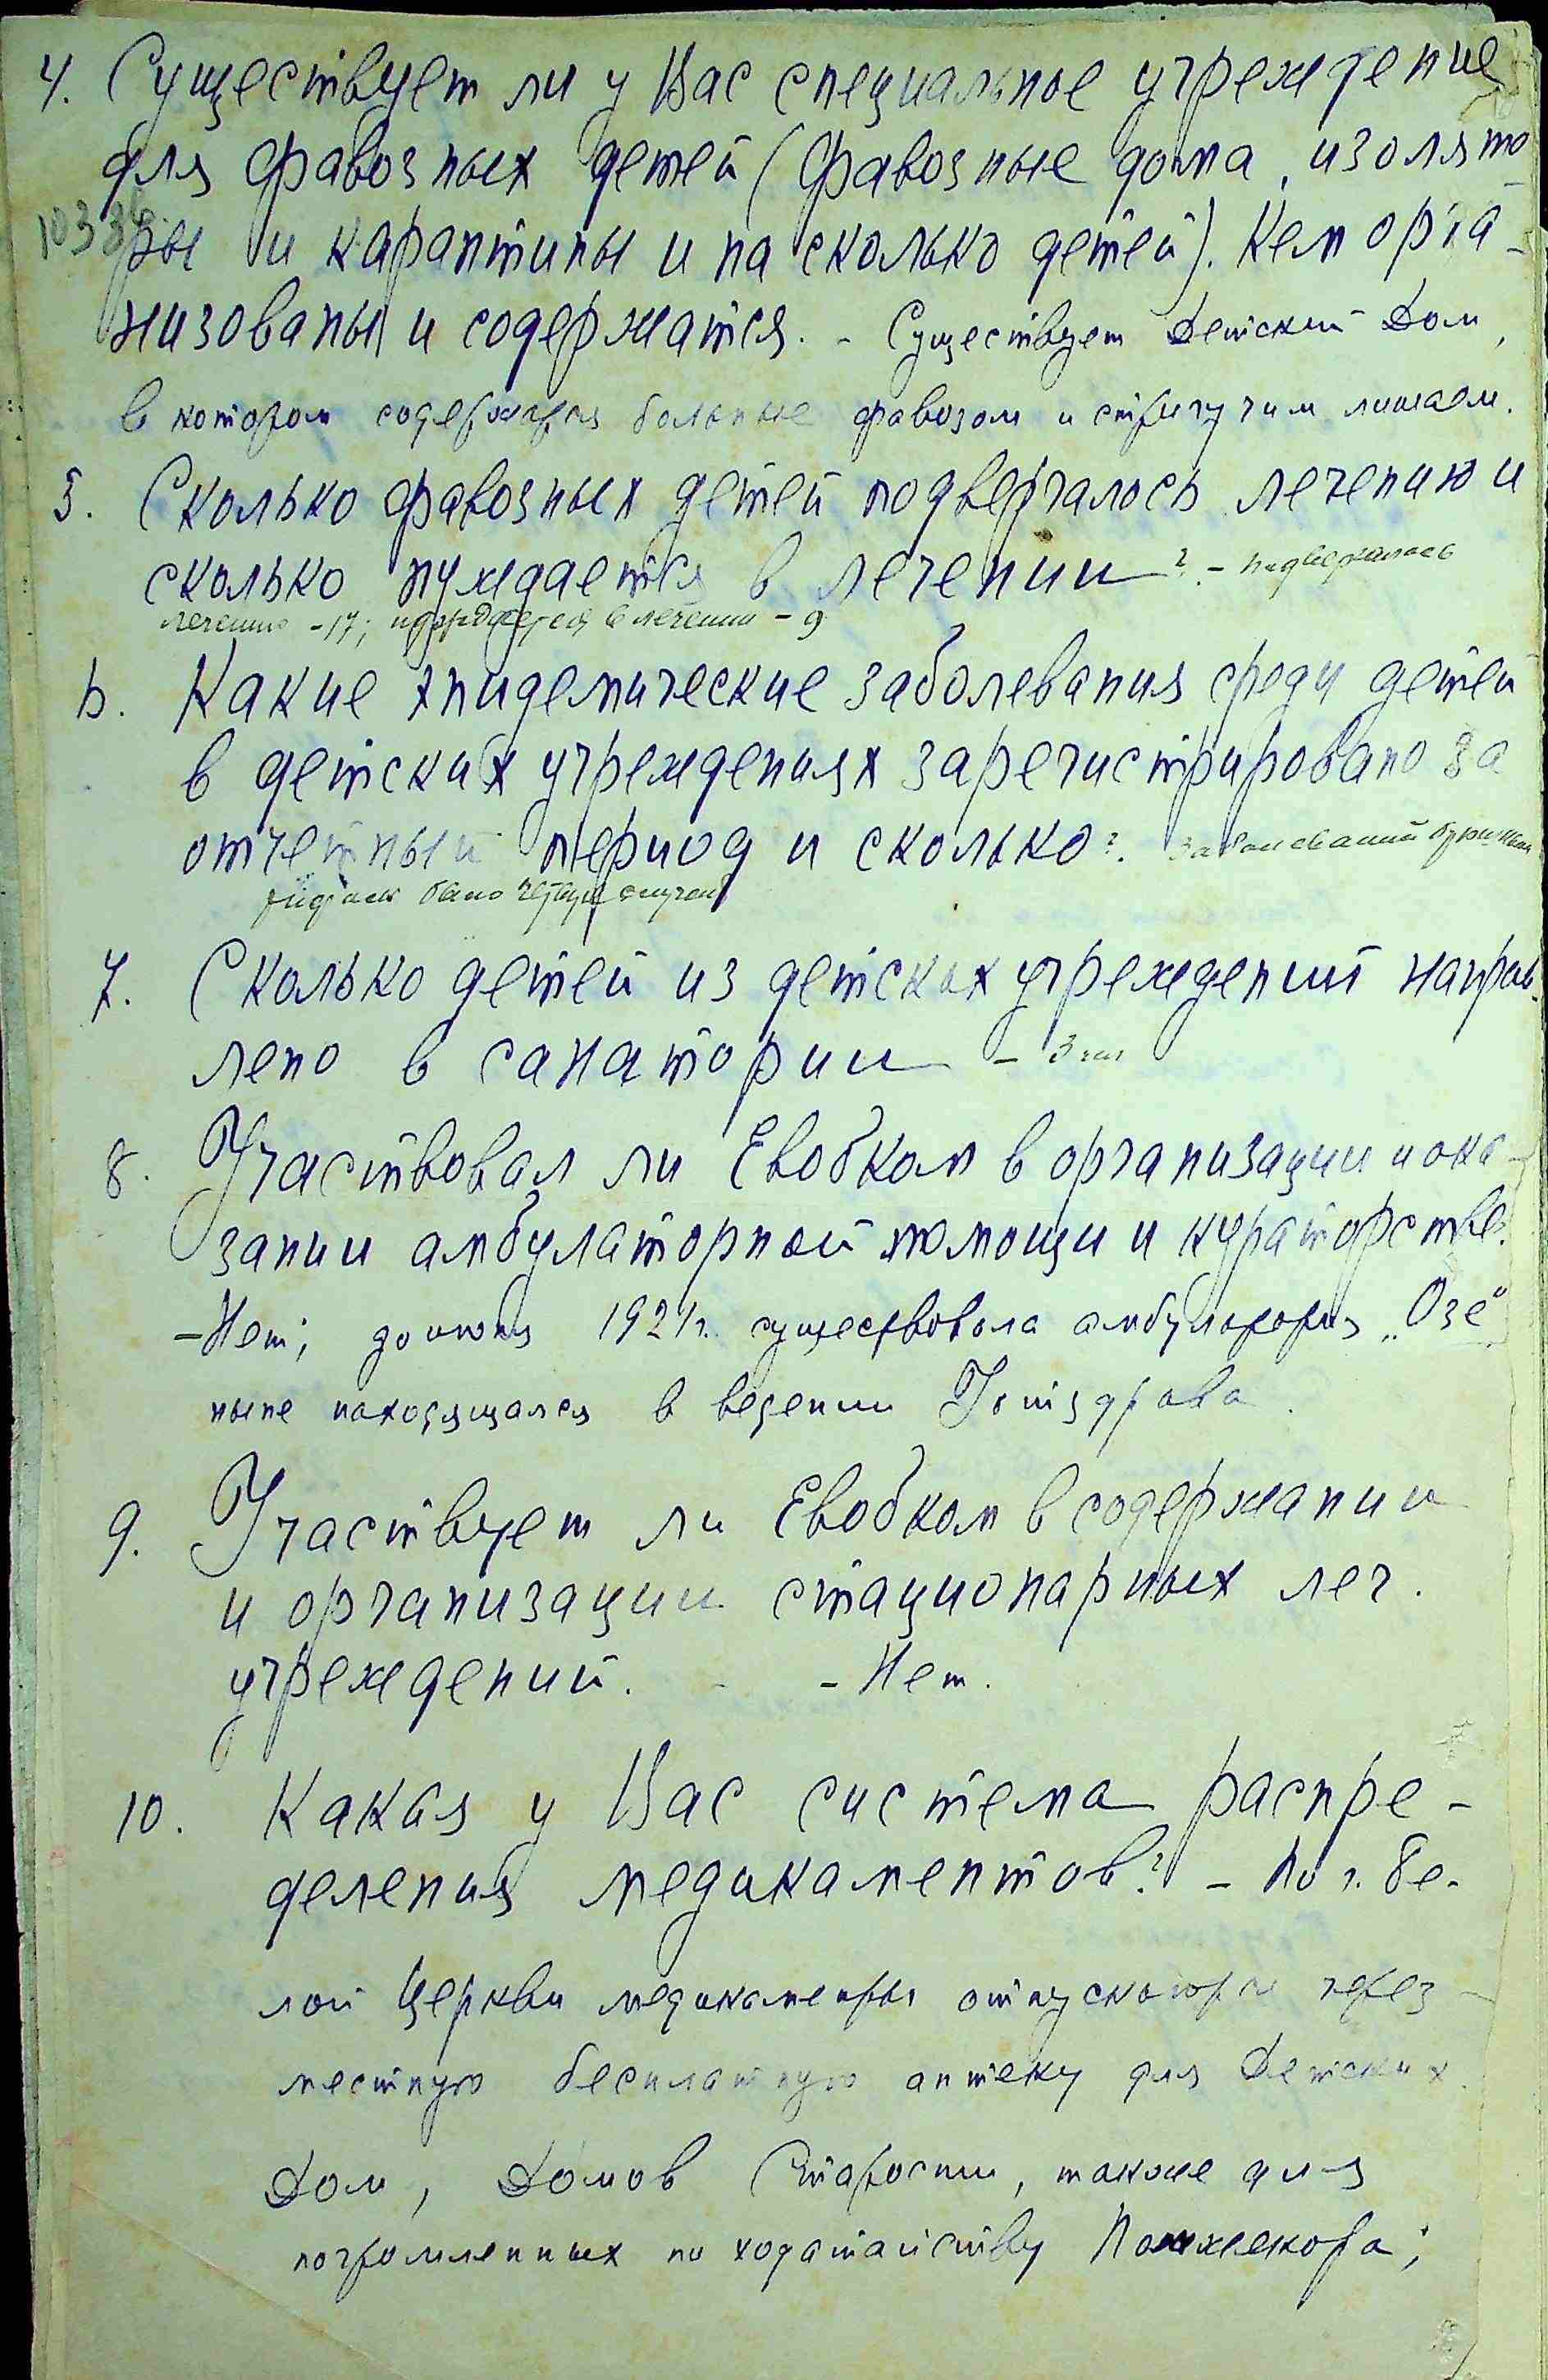 4. Существует ли у Вас специальное учреждение
для фавозных детей (фавозные дома, изолято-
ры и карантины и на сколько детей). Кем орга-
низованы и содержатся. - Существует Детский Дом,
в котором содержатся больные фавозом и стригучим лишаем.
5. Сколько фавозных детей подвергалось лечению и
сколько нуждается в лечении? - подвергалось
лечению - 17; нуждается в лечении - 9
6. Какие эпидемические заболевания среди детей
в детских учреждениях зарегистрировано за
отчетный период и сколько?. Заболеваний брюшным
тифом было четыре случая
7. Сколько детей из детских учреждений направ-
лено в санатории - 3
8. Участвовал ли Евобком в организации и ока-
зании амбулаторной помощи и кураторстве.
- Нет; 1921 г. существовала амбулатория „Озе"
ныне находящаяся в ведении
9. Участвует ли Евобком в содержании
и организации стационарных леч.
учреждений. - Нет.
10. Какая у Вас система распре-
деления медикаментов? - По г. Бе-
лой Церкви медикаменты отпускаются через
местную бесплатную аптеку для Детских
Дом, Домов Старости, также для
погромленных по ходатайству